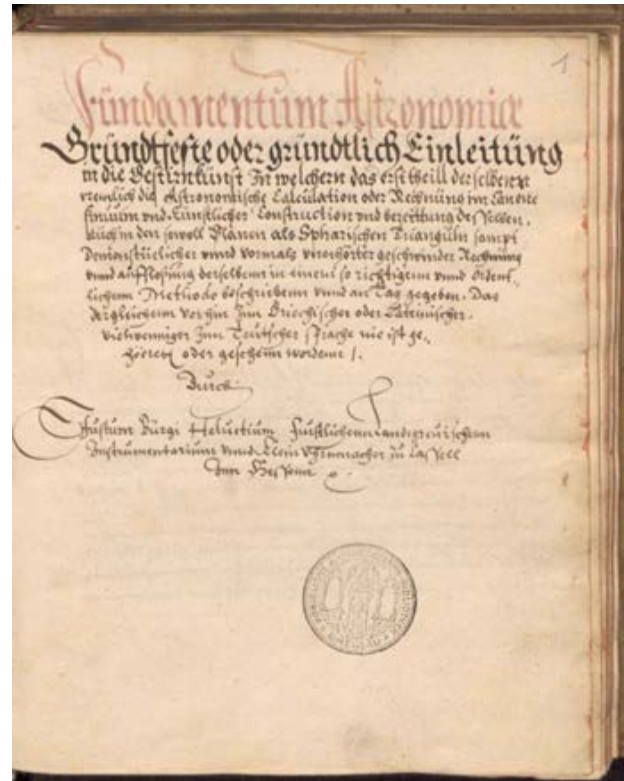 1
Fundamentum Astronomiæ
Grundtfeste oder gründtlich Einleitüng
in die Gestirnkunst In welchern das erst theill derselben
nemlich die Astronomische Calculation oder Rechnung im Canone
sinuum vnd Künstlicher Construction vnd bereittung desselben.
Auch in den sowoll Planen als Sphärischen Trianguln sampt
vnnd vormals vnerhörter geschwinder Rechnung
vnnd aufflösung derselbenn in einem so richtigenn vnnd Ordent,,
lichenn Methodo beschriebenn vnnd an Tag gegeben. Das
dergleichenn vorhin Inn Griechischer oder Lateinischer.
vielweniger Inn Teutscher sprache nie ist ge,,
höerett oder gesehenn wordenn /.
Durch
Justum Bürgi Helvetium Fürstlichenn Landtgreuischenn
Instrumentarium vnnd Klein Vhrmacher zu Cassell
Inn Hessenn